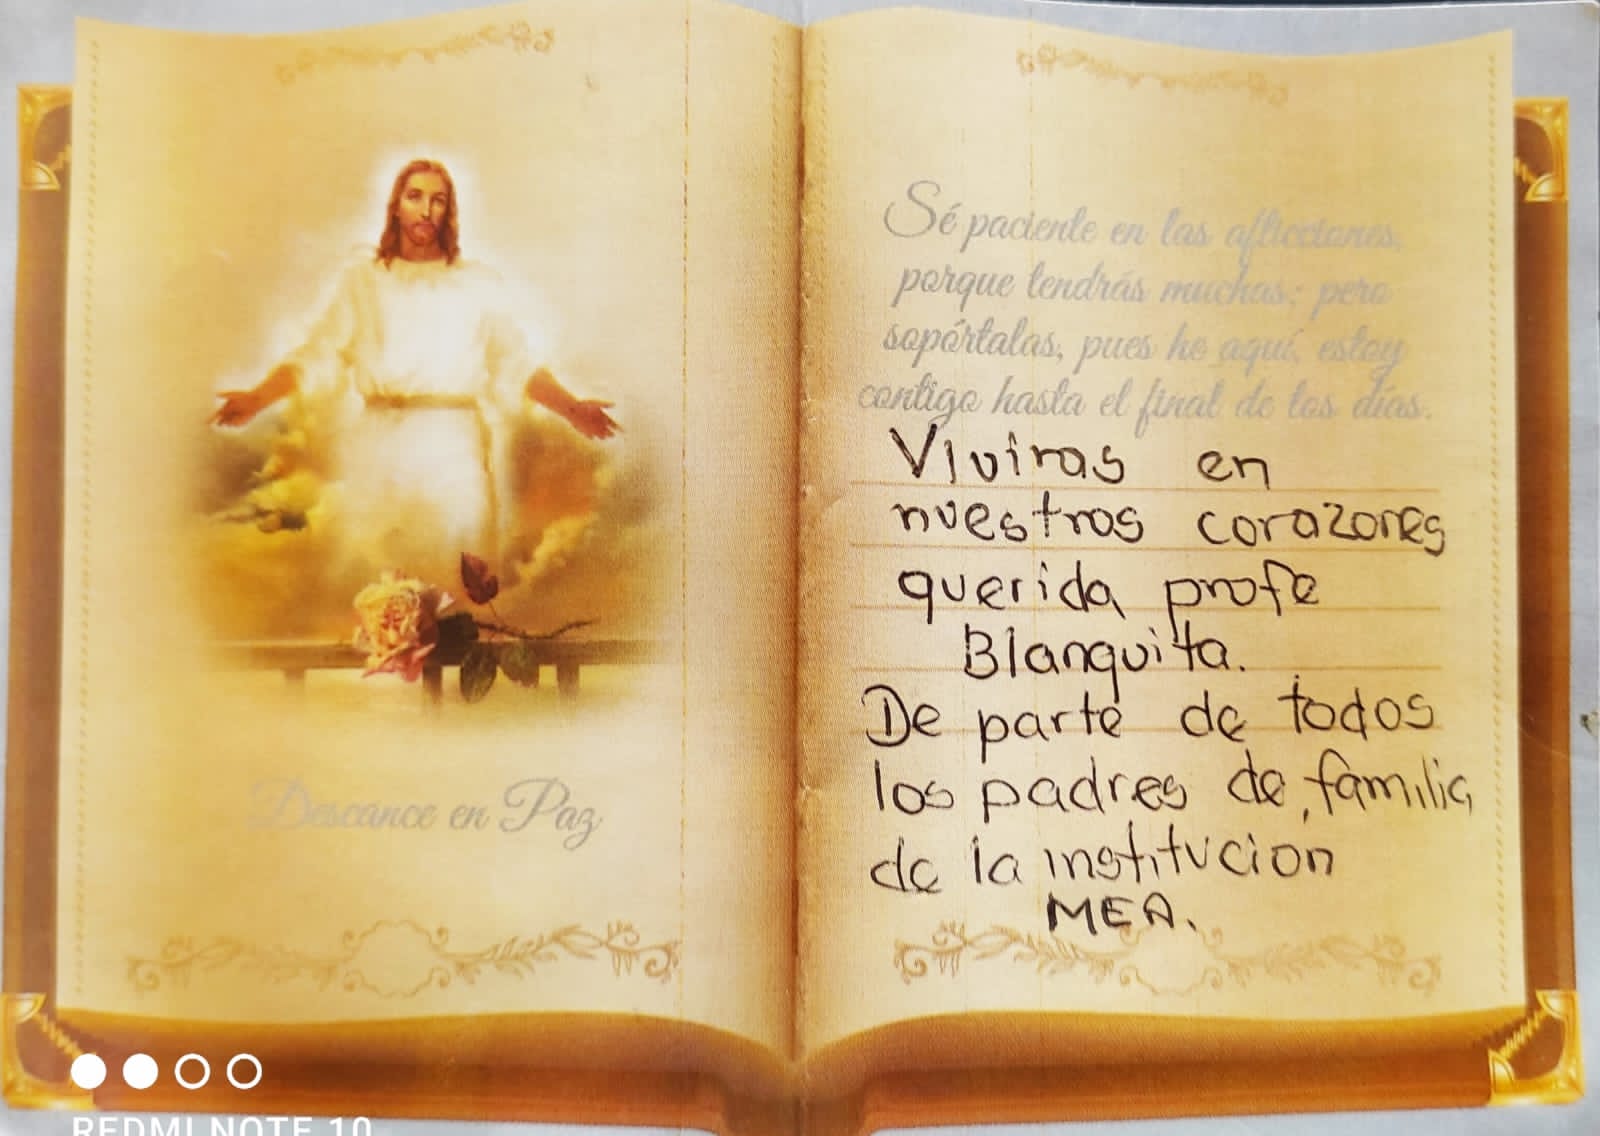 Descance en Paz
Sé paciente en las aflicciones,
porque tendrás muchas; pero
sopórtalas, pues he aquí, estoy
contigo hasta el final de los días.
Viviras en
nuestros corazones
querida profe
Blanquita.
De parte de todos
los padres de familia
de la institucion
MEA.
REDMI NOTE 10